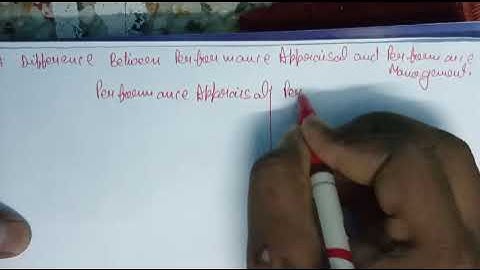 Difference Between Performance Appraisal and Performance
Management.
Performance Appraisal Per